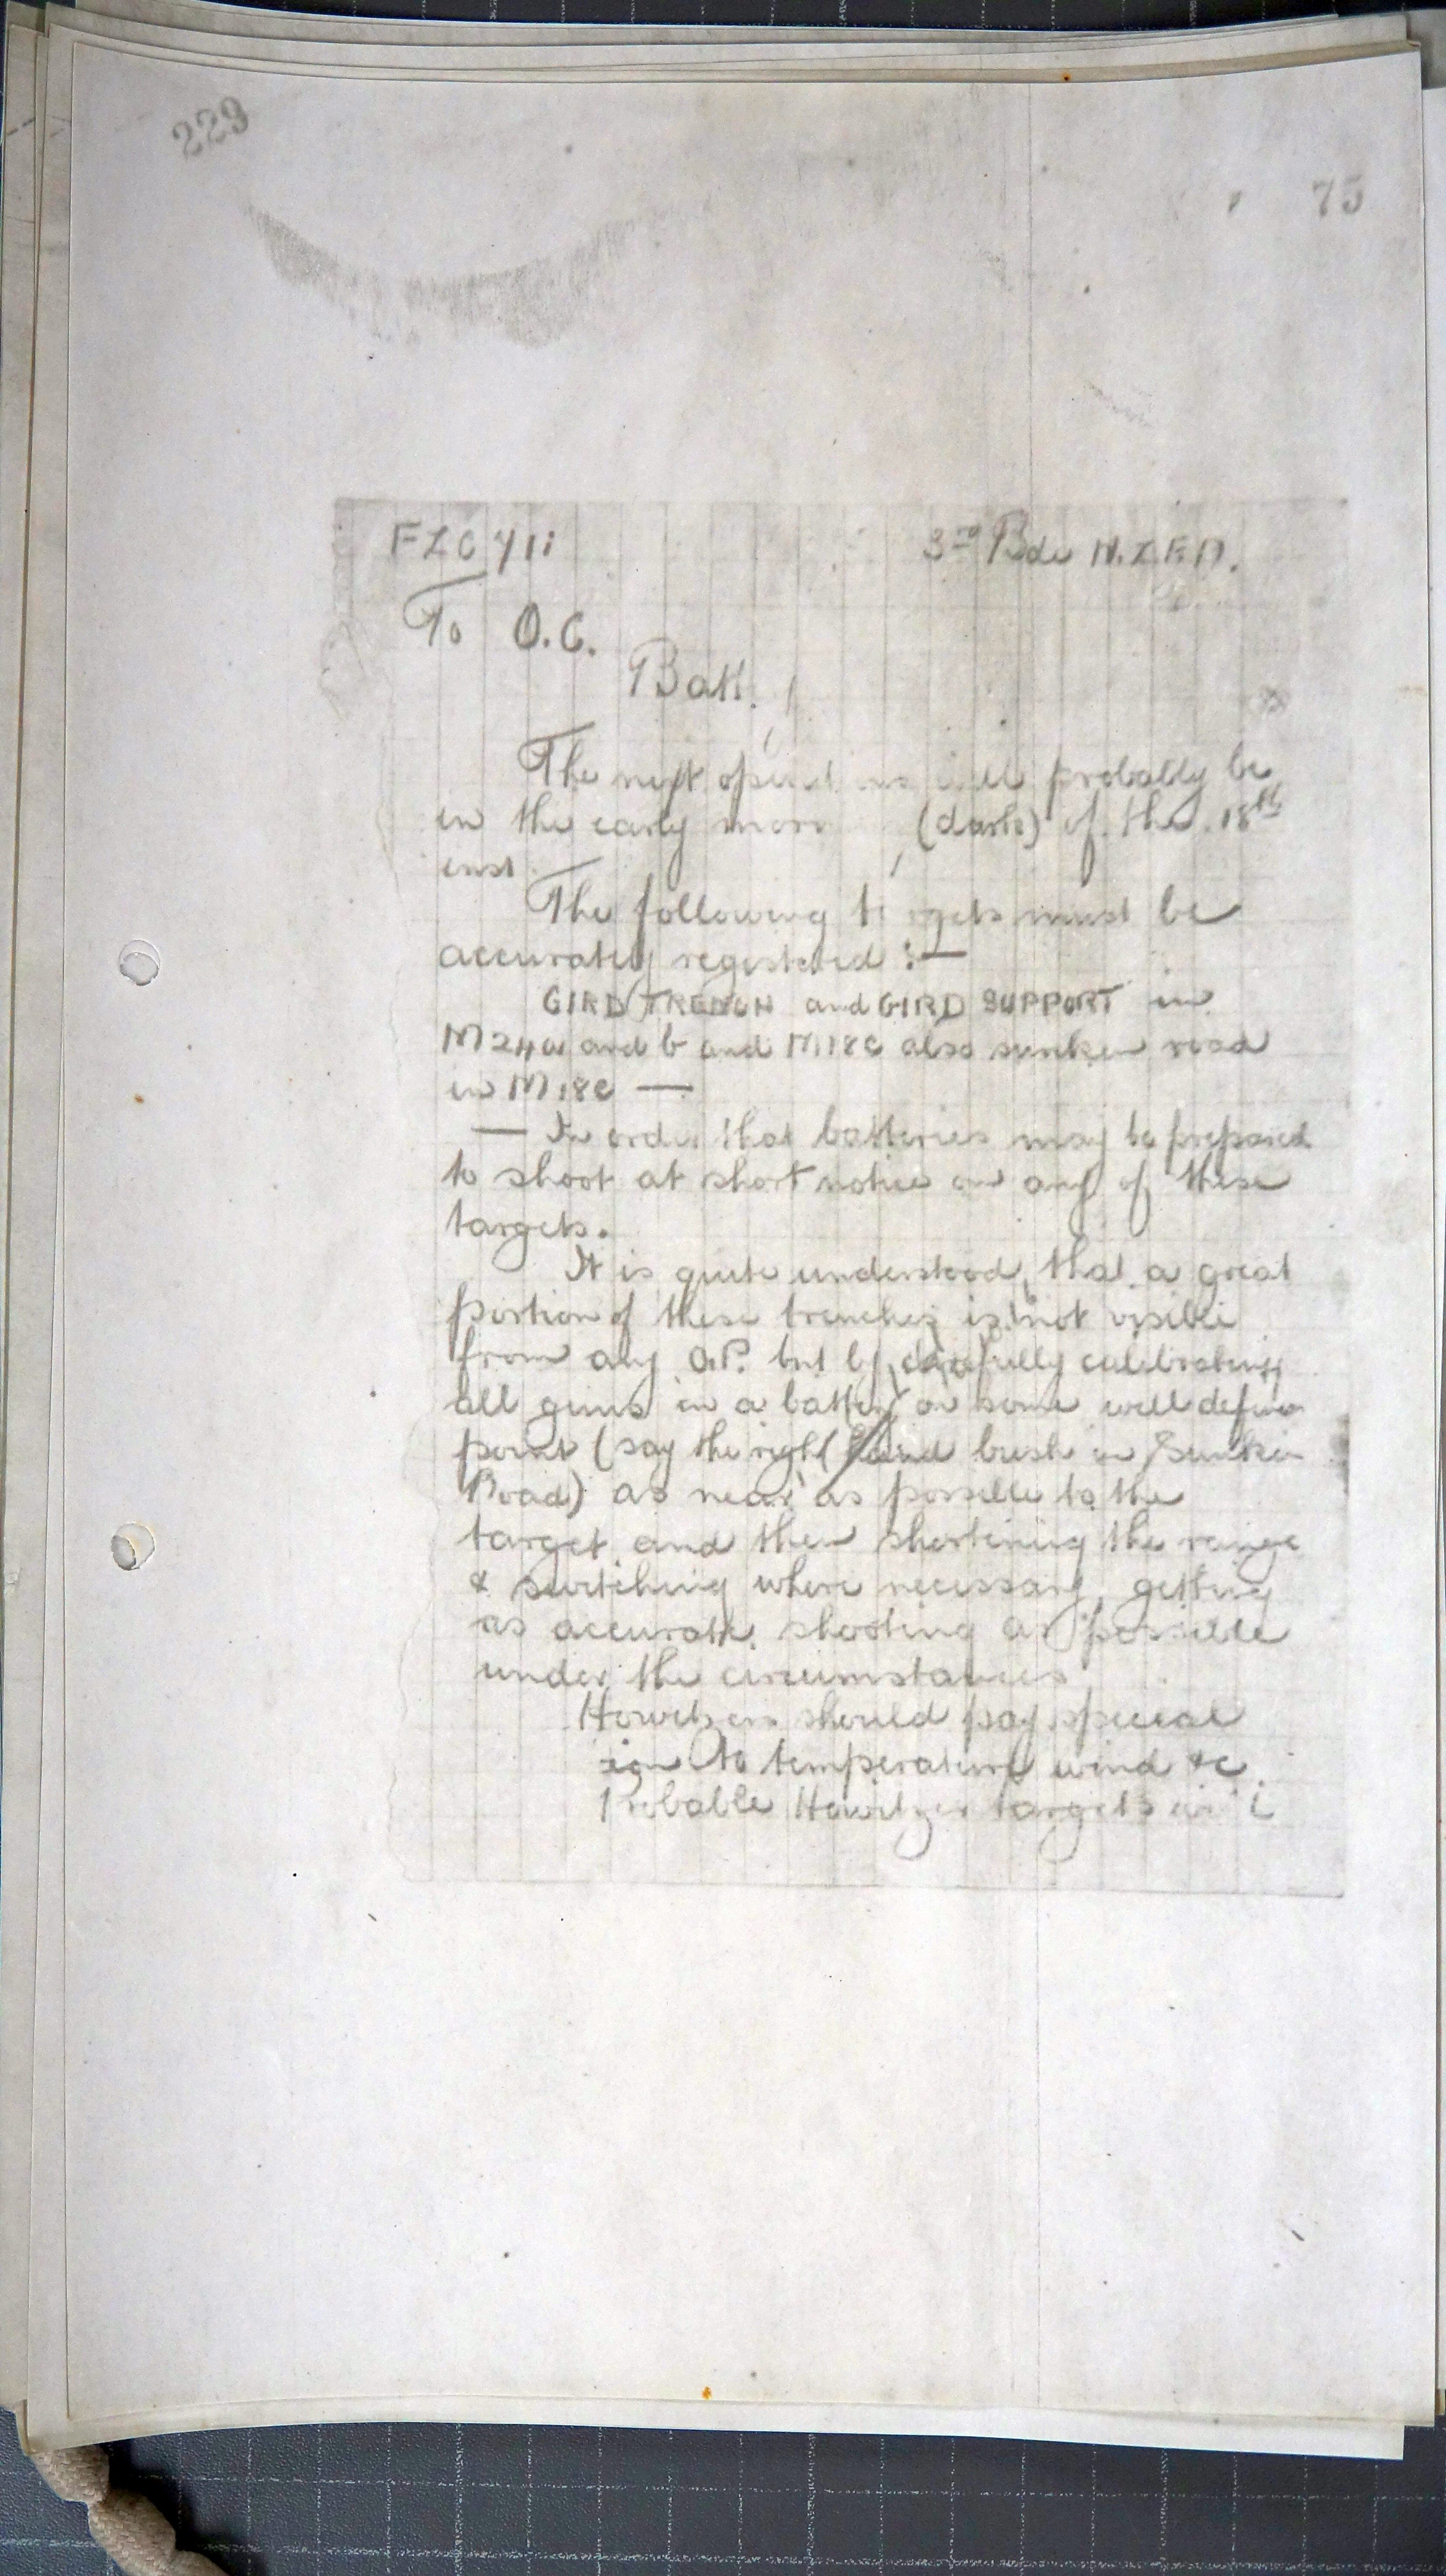 229
75
3rd Bde N.Z.F.A.
To O.C.
Batt.
The next will probably be
in the early (dark) of the 18th
inst
The following must be
accurately registered :—
GIRD TRENCH and GIRD SUPPORT in
M24a and b and M18c also sunken road
in M18c —
— In order that batteries may be prepared
to shoot at short notice on any of these
targets.
It is quite understood, that a great
portion of these trenches is not visible
from any O.P. but by carefully calibrating
all guns in a battery on some well define
point (say the right hand bush in Sunken
Road) as near as possible to the
target and then shortening the range
& switching where necessary, getting
as accurate shooting as possible
under the circumstances
Howitzers should pay special
to temperature wind &c
Probable Howitzer targets